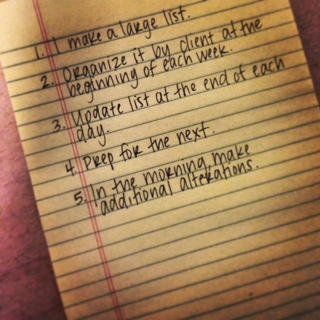 1. I make a large list.
2. Organize it by client at the
beginning of each week.
3. Update list at the end of each
day.
4. Prep for the next.
5. In the morning, make
additional alterations.